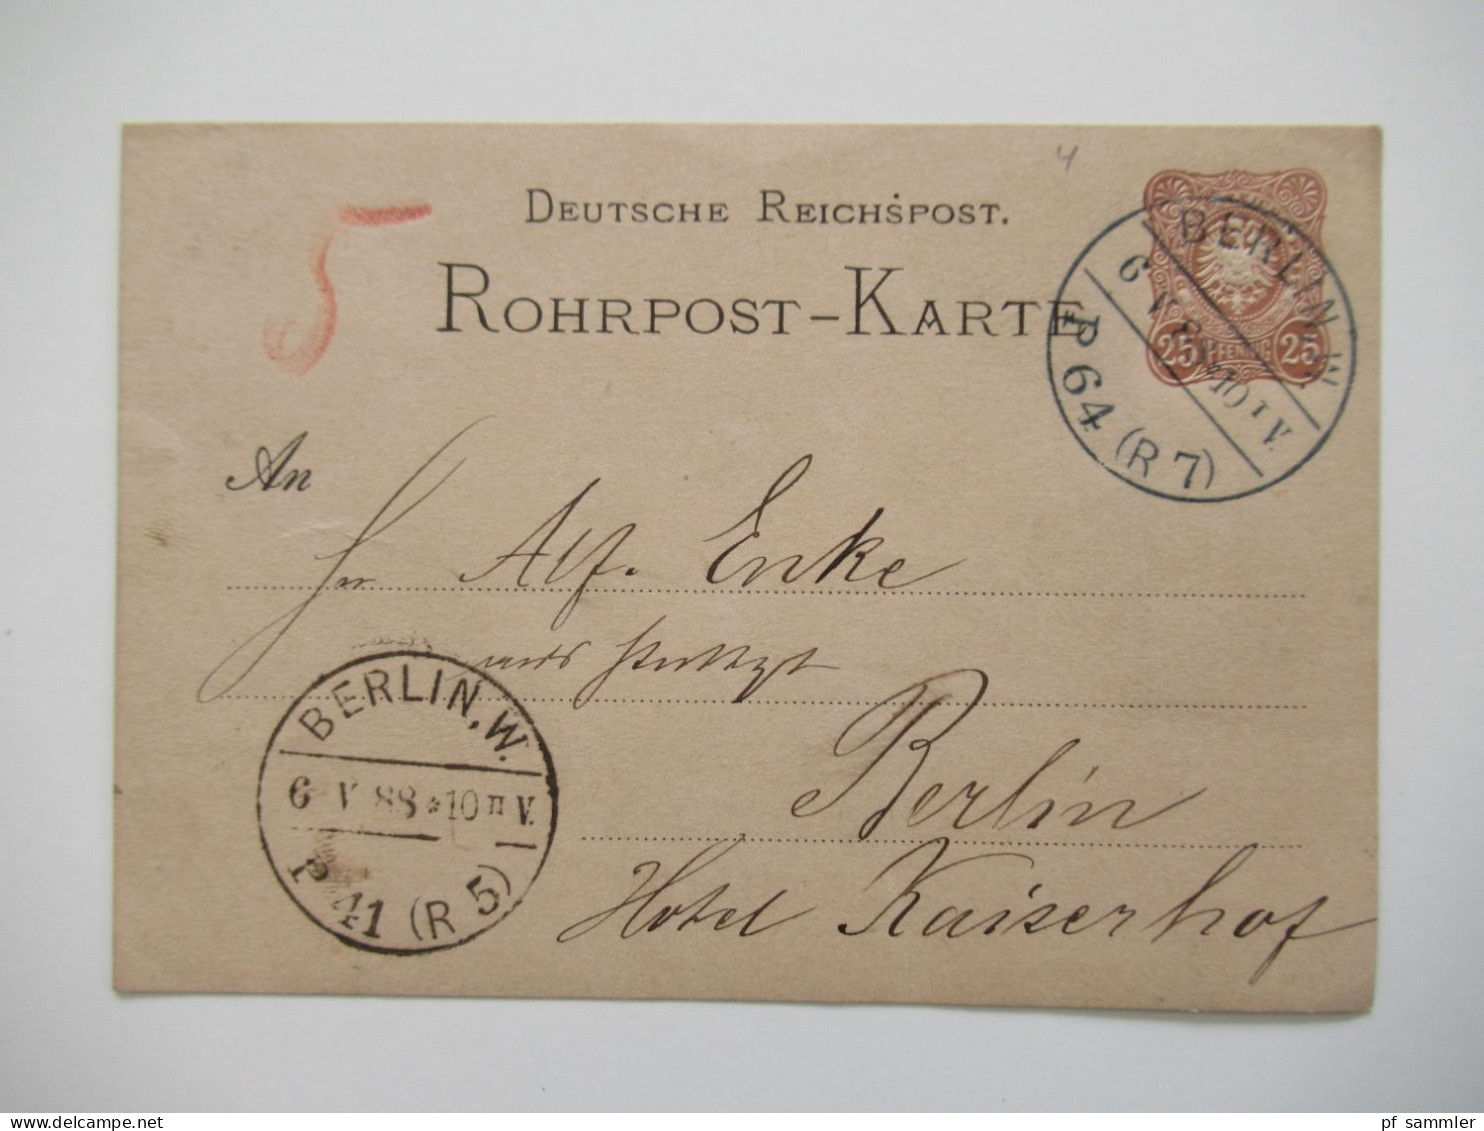 4
DEUTSCHE REICHSPOST.
5
ROHRPOST-KARTE
25 PFENNIG 25
BERLIN W
6 V 88 * 10 I V.
P 64 (R 7)
An
Hr Alf. Enke
Berlin
Hotel Kaiserhof
BERLIN, W.
6 V 88 * 10 II V.
P 41 (R 5)
pf sammler